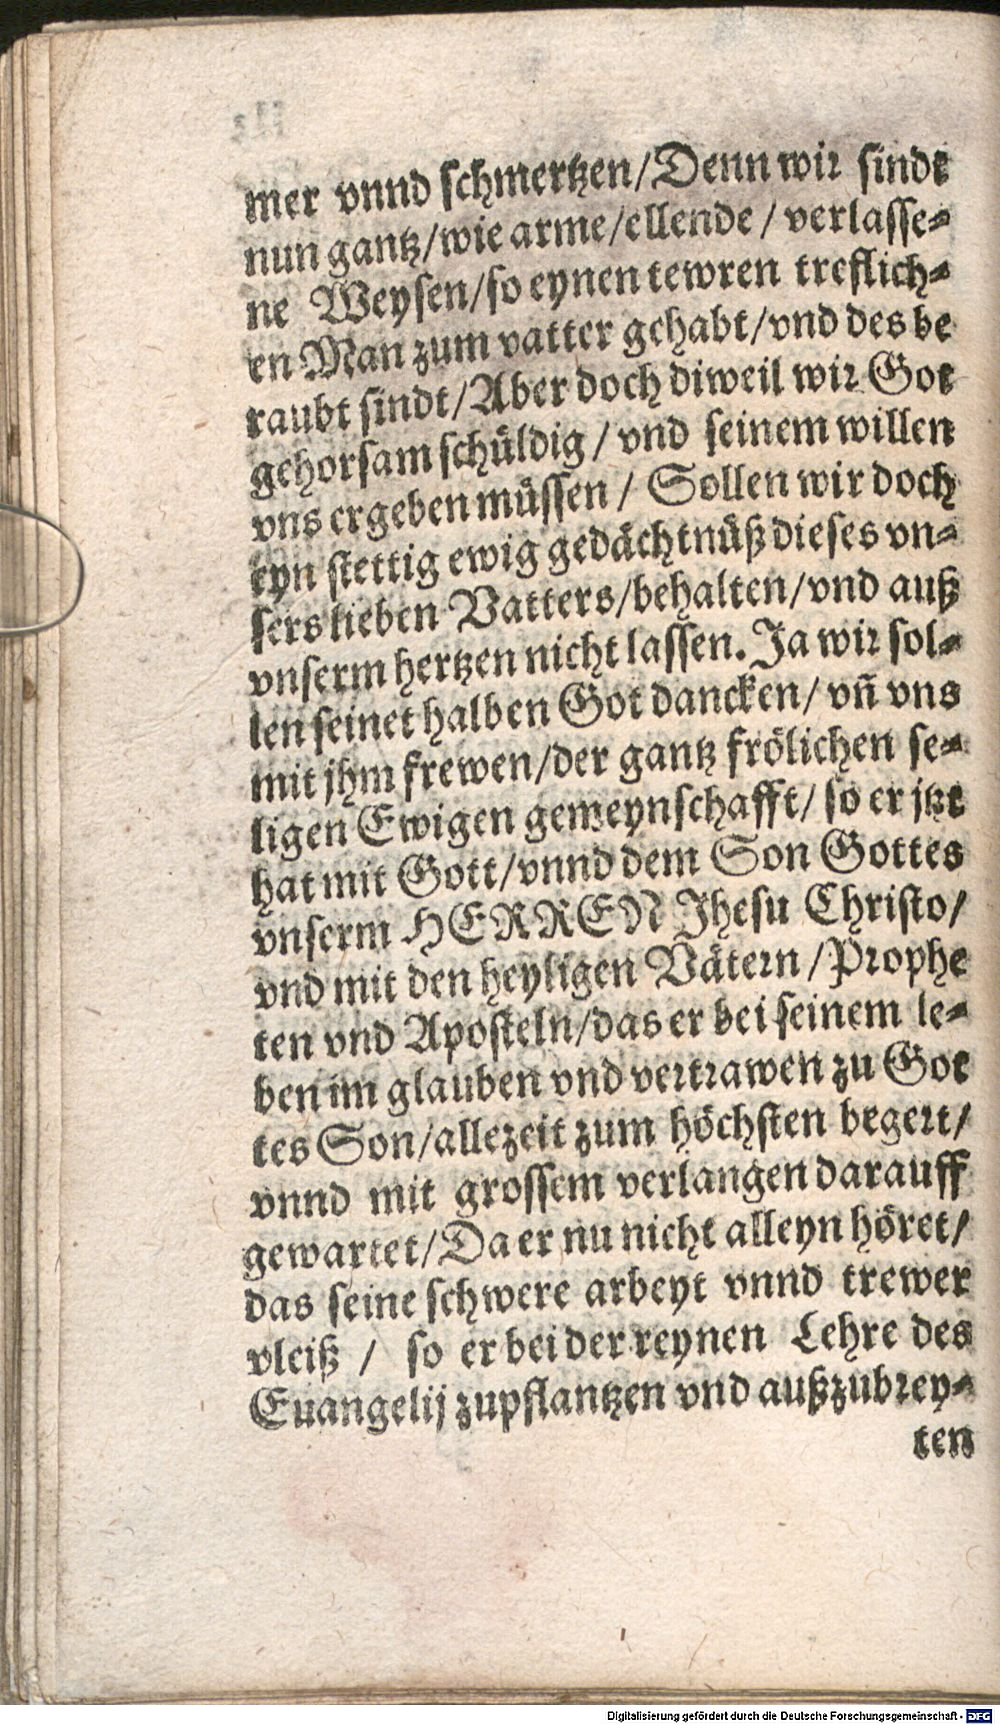 mer vnnd schmertzen/Denn wir sindt
nun gantz/wie arme/ellende / verlasse-
ne Weysen/so eynen tewren treflich-
en Man zum vatter gehabt/vnd des be
raubt sindt/Aber doch diweil wir Got
gehorsam schüldig / vnd seinem willen
vns ergeben müssen / Sollen wir doch
eyn stettig ewig gedächtnüß dieses vn-
sers lieben Vatters/behalten/vnd auß
vnserm hertzen nicht lassen. Ja wir sol-
len seinet halben Got dancken/ vñ vns
mit jhm frewen/der gantz frölichen se-
ligen Ewigen gemeynschafft/ so er jtzt
hat mit Gott/vnnd dem Son Gottes
vnserm HERREN Jhesu Christo/
vnd mit den heyligen Vätern /Prophe
ten vnd Aposteln/das er bei seinem le-
ben im glauben vnd vertrawen zu Got
tes Son/allezeit zum höchsten begert/
vnnd mit grossem verlangen darauff
gewartet/Da er nu nicht alleyn höret/
das seine schwere arbeyt vnnd trewer
vleiß / so er bei der reynen Lehre des
Euangelij zupflantzen vnd außzubrey-
ten
Digitalisierung gefördert durch die Deutsche Forschungsgemeinschaft - DFG